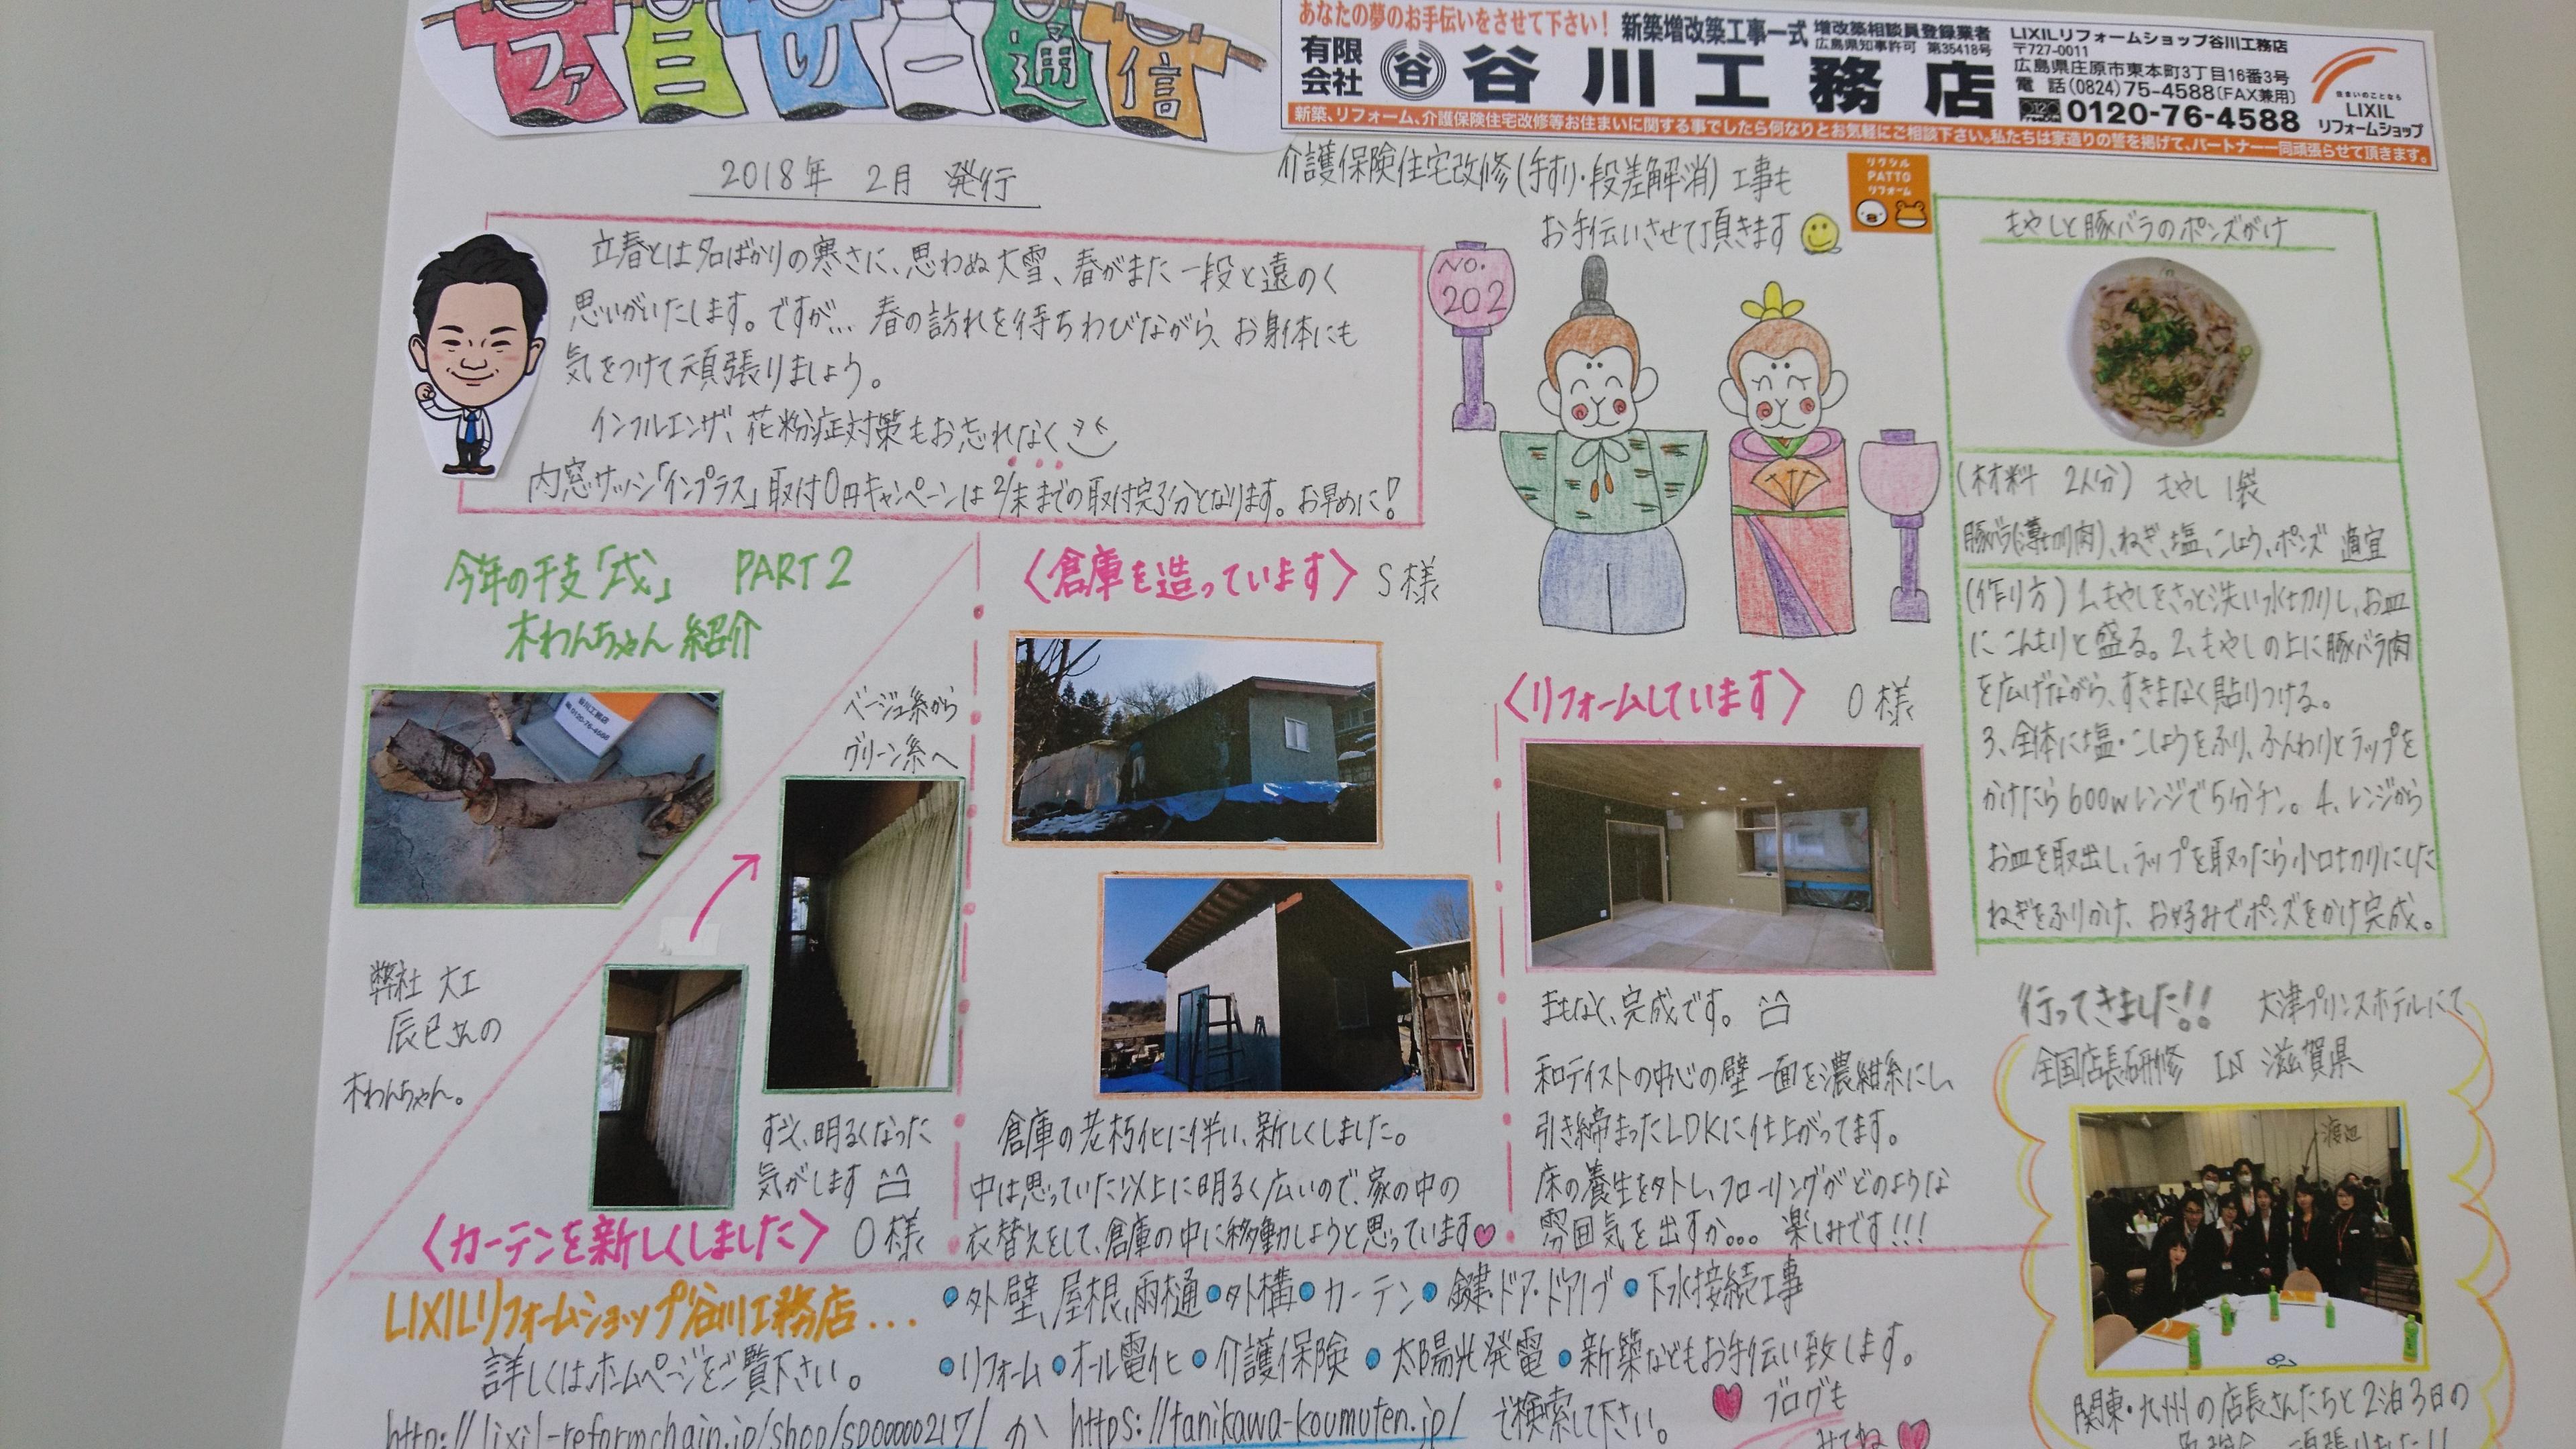 ファミリー通信
あなたの夢のお手伝いをさせて下さい！ 新築増改築工事一式 増改築相談員登録業者
広島県知事許可 第35418号
有限会社 谷 谷川工務店
LIXILリフォームショップ谷川工務店
〒727-0011
広島県庄原市東本町3丁目16番3号
電話(0824)75-4588〔FAX兼用〕
0120-76-4588
住まいのことなら
LIXIL
リフォームショップ
新築、リフォーム、介護保険住宅改修等お住まいに関する事でしたら何なりとお気軽にご相談下さい。私たちは家造りの誓を掲げて、パートナー一同頑張らせて頂きます。
2018年 2月 発行
介護保険住宅改修(手すり・段差解消)工事も
お手伝いさせて頂きます
リクシル
PATTO
リフォーム
立春とは名ばかりの寒さに、思わぬ大雪、春がまた一段と遠のく
思いがいたします。ですが… 春の訪れを待ちわびながら、お身体にも
気をつけて頑張りましょう。
インフルエンザ、花粉症対策もお忘れなく
内窓サッシ「インプラス」取付0円キャンペーンは2/末までの取付完了分となります。お早めに!
NO.
202
もやしと豚バラのポンズがけ
(材料 2人分) もやし 1袋
豚バラ(薄切り肉)、ねぎ、塩、こしょう、ポンズ 適宜
(作り方) 1、もやしをさっと洗い水切りし、お皿
にこんもりと盛る。2、もやしの上に豚バラ肉
を広げながら、すきまなく貼りつける。
3、全体に塩・こしょうをふり、ふんわりとラップを
かけたら600wレンジで5分チン。4、レンジから
お皿を取出し、ラップを取ったら小口切りにした
ねぎをふりかけ、お好みでポンズをかけ完成。
今年の干支「戌」 PART2
木わんちゃん紹介
谷川工務店
0120-76-4588
弊社 大工
辰巳さんの
木わんちゃん。
ベージュ系から
グリーン系へ
すごく、明るくなった
気がします
〈カーテンを新しくしました〉 O様
〈倉庫を造っています〉 S様
倉庫の老朽化に伴い、新しくしました。
中は思っていた以上に明るく広いので、家の中の
衣替えをして、倉庫の中に移動しようと思っています
〈リフォームしています〉 O様
まもなく、完成です。
和テイストの中心の壁一面を濃紺系にし、
引き締まったLDKに仕上がってます。
床の養生を外し、フローリングがどのような
雰囲気を出すか… 楽しみです!!!
行ってきました!! 大津プリンスホテルにて
全国店長研修 IN 滋賀県
渡辺
関東・九州の店長さんたちと2泊3日の
頑張りました!!
LIXILリフォームショップ谷川工務店...
●外壁、屋根、雨樋●外構●カーテン●鍵・ドア・ドアノブ●下水接続工事
●リフォーム●オール電化●介護保険●太陽光発電●新築などもお手伝い致します。
詳しくは、ホームページをご覧下さい。
http://lixil-reformchain.jp/shop/sp00000217/ か https://tanikawa-koumuten.jp/ で検索して下さい。
ブログも
みてね